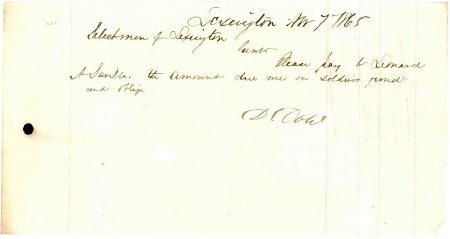 Lexington Nov 7th 1865
Selectmen of Lexington
Gents
Please pay to Leonard
A Saville the amount due me on soldiers fund
and oblige